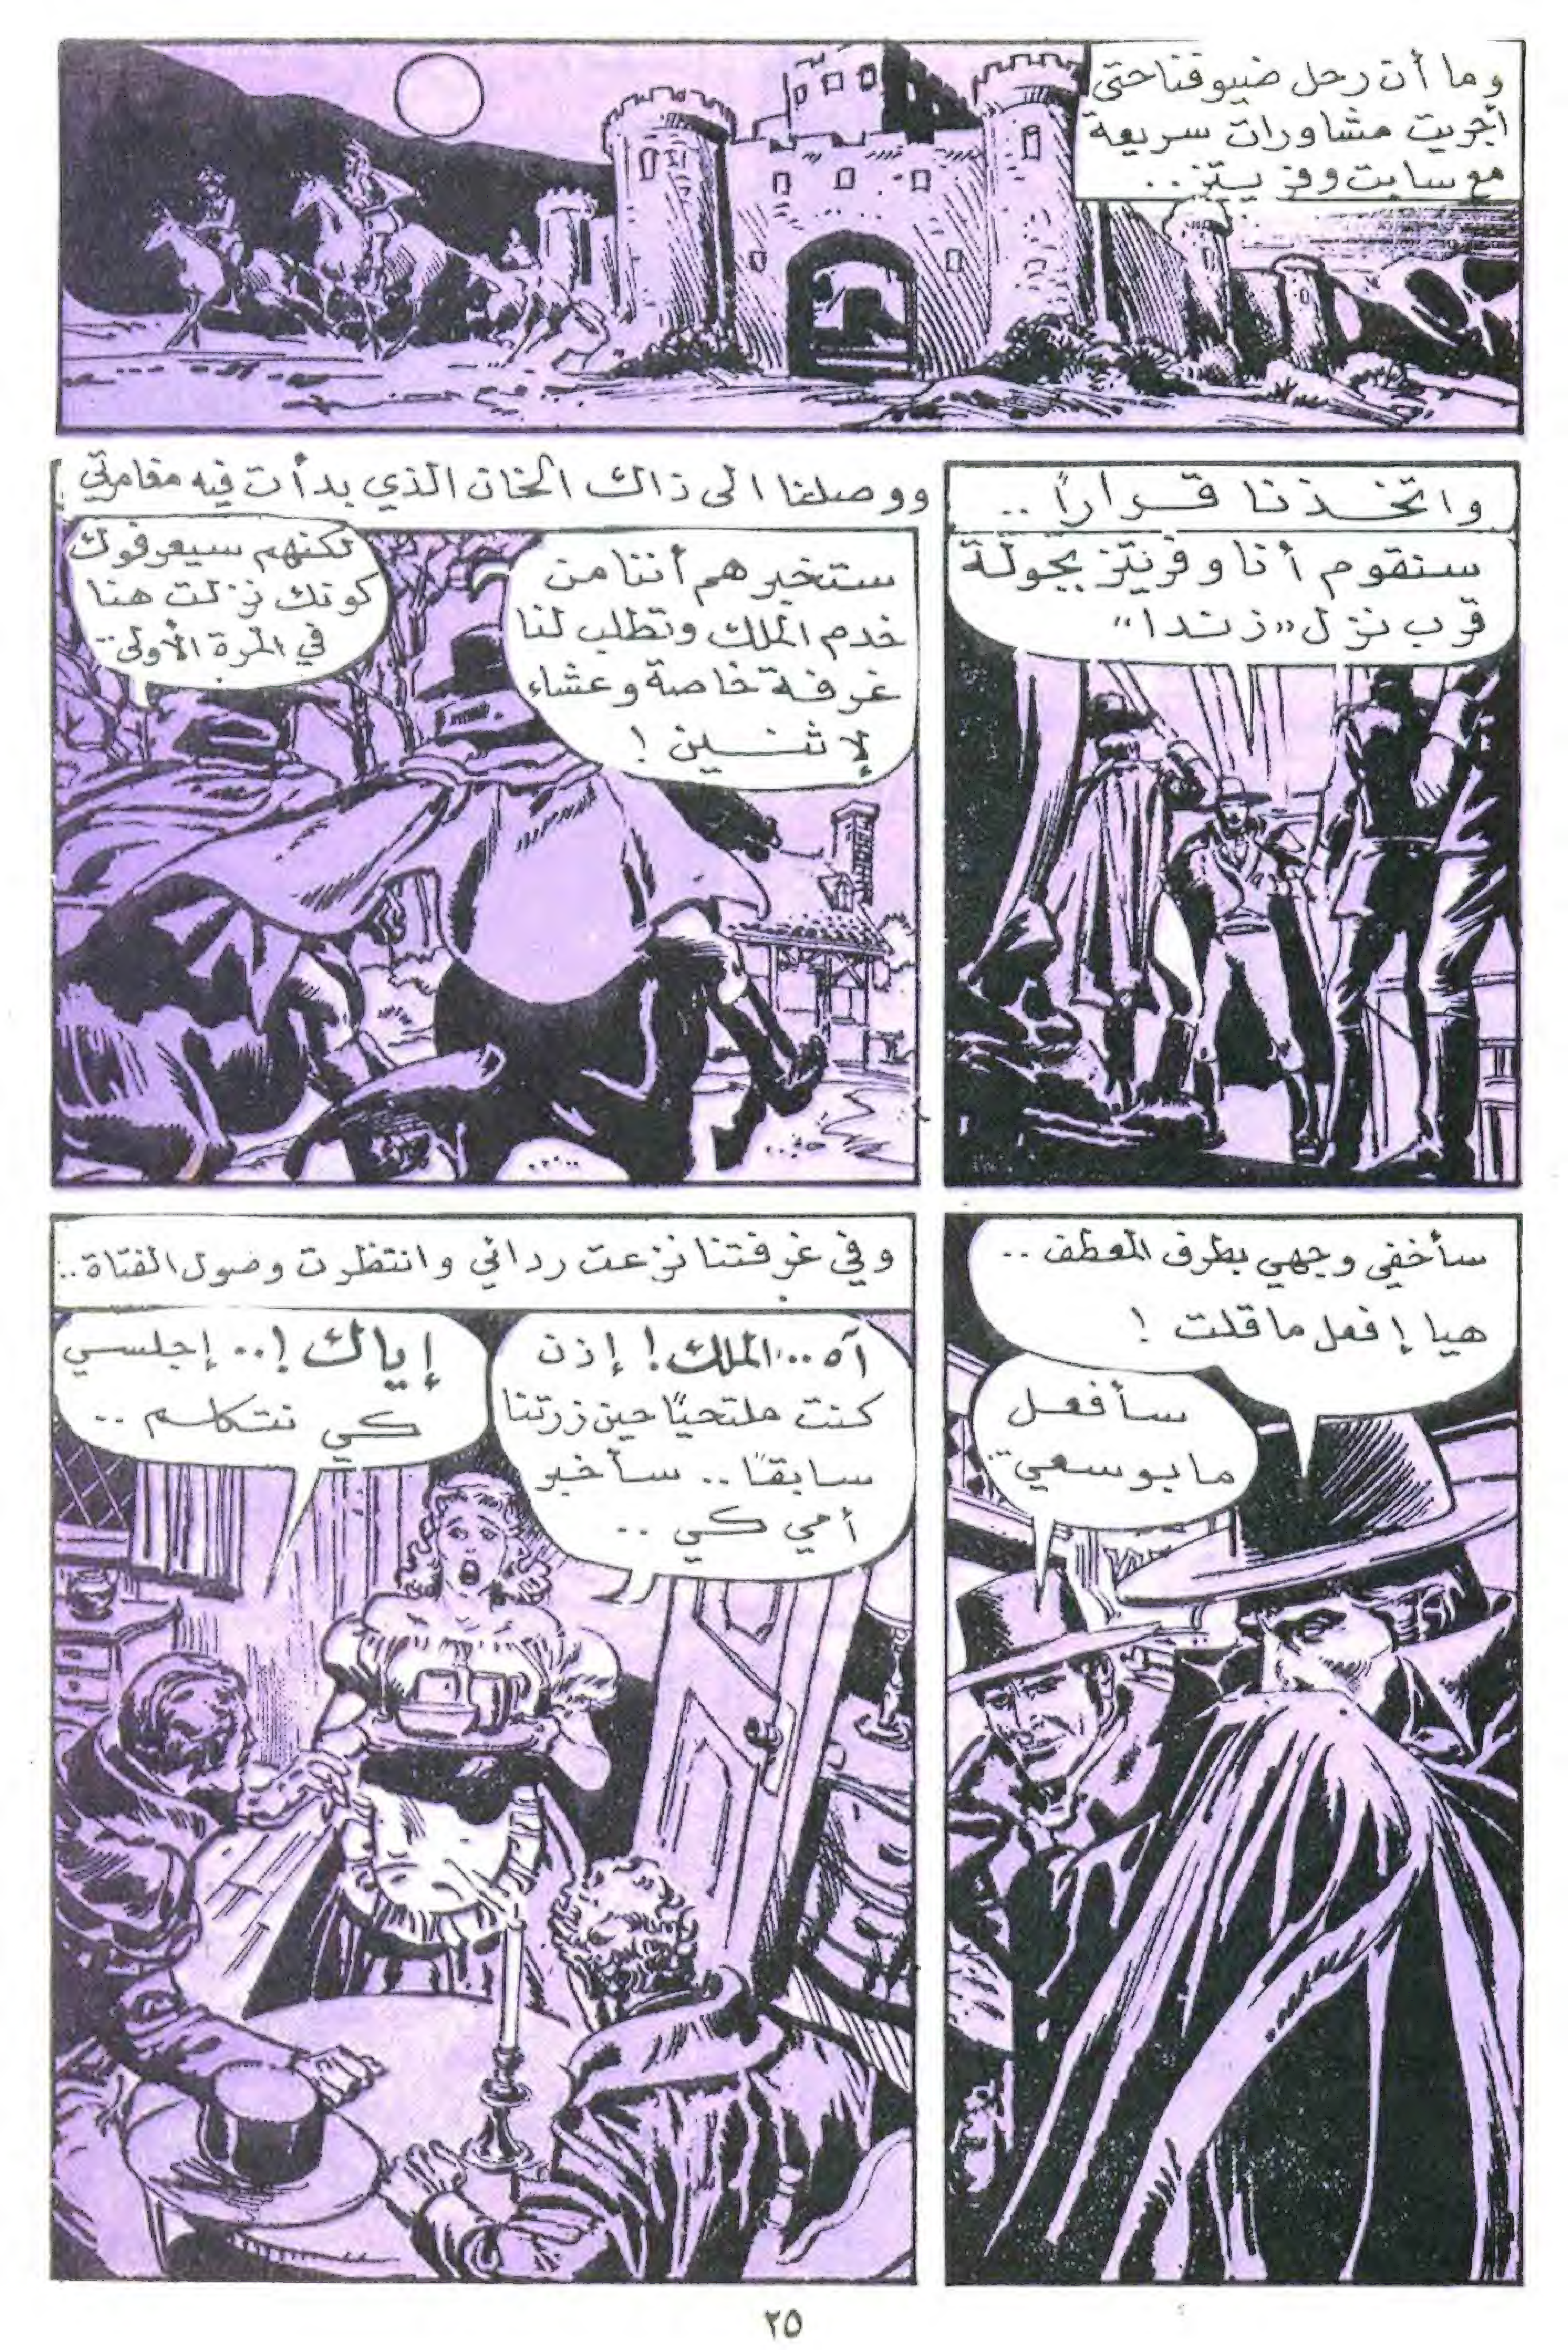 وما أن رحل ضيوفنا حتى
أجريت مشاورات سريعة
مع سابت وفريتز..
واتخذنا قراراً ..
سنقوم أنا وفريتز بجولة
قرب نزل "زندا"
ووصلنا الى ذاك الخان الذي بدأت فيه مغامرتي
ستخبرهم أننا من
خدم الملك وتطلب لنا
غرفة خاصة وعشاء
لإثنين !
لكنهم سيعرفوك
كونك نزلت هنا
في المرة الأولى..
سأخفي وجهي بطرف المعطف ..
هيا إفعل ما قلت !
سأفعل
ما بوسعي..
وفي غرفتنا نزعت ردائي وانتظرت وصول الفتاة..
آه.. الملك! إذن
كنت ملتحيًا حين زرتنا
سابقًا .. سأخبر
أمي كي ..
إياك !.. إجلسي
كي نتكلم ..
٢٥